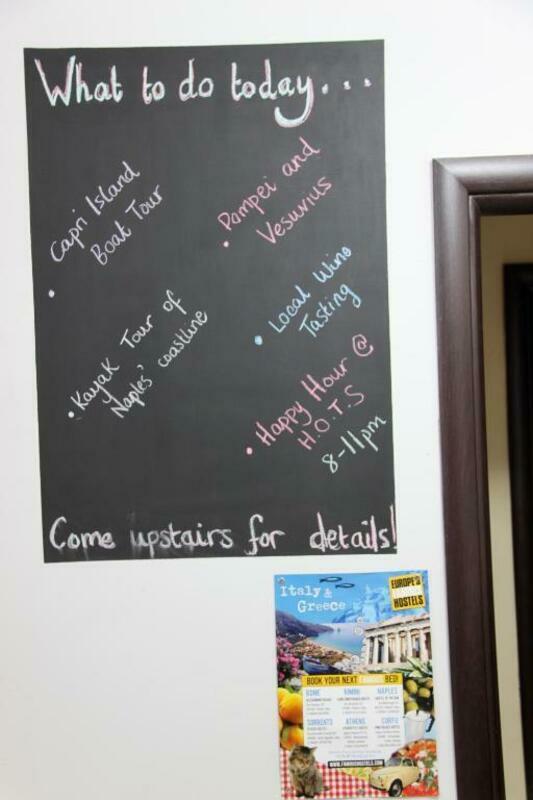 What to do today...
• Capri Island
Boat Tour
• Kayak Tour of
Naples' coastline
• Pompei and
Vesuvius
• Local Wine
Tasting
• Happy Hour @
H.O.T.S
8-11pm
Come upstairs for details!
Italy &
Greece
EUROPE'S
HOSTELS
BOOK YOUR NEXT BED!
ROME
RIMINI
NAPLES
SORRENTO
ATHENS
CORFU
WWW.FAMOUSHOSTELS.COM